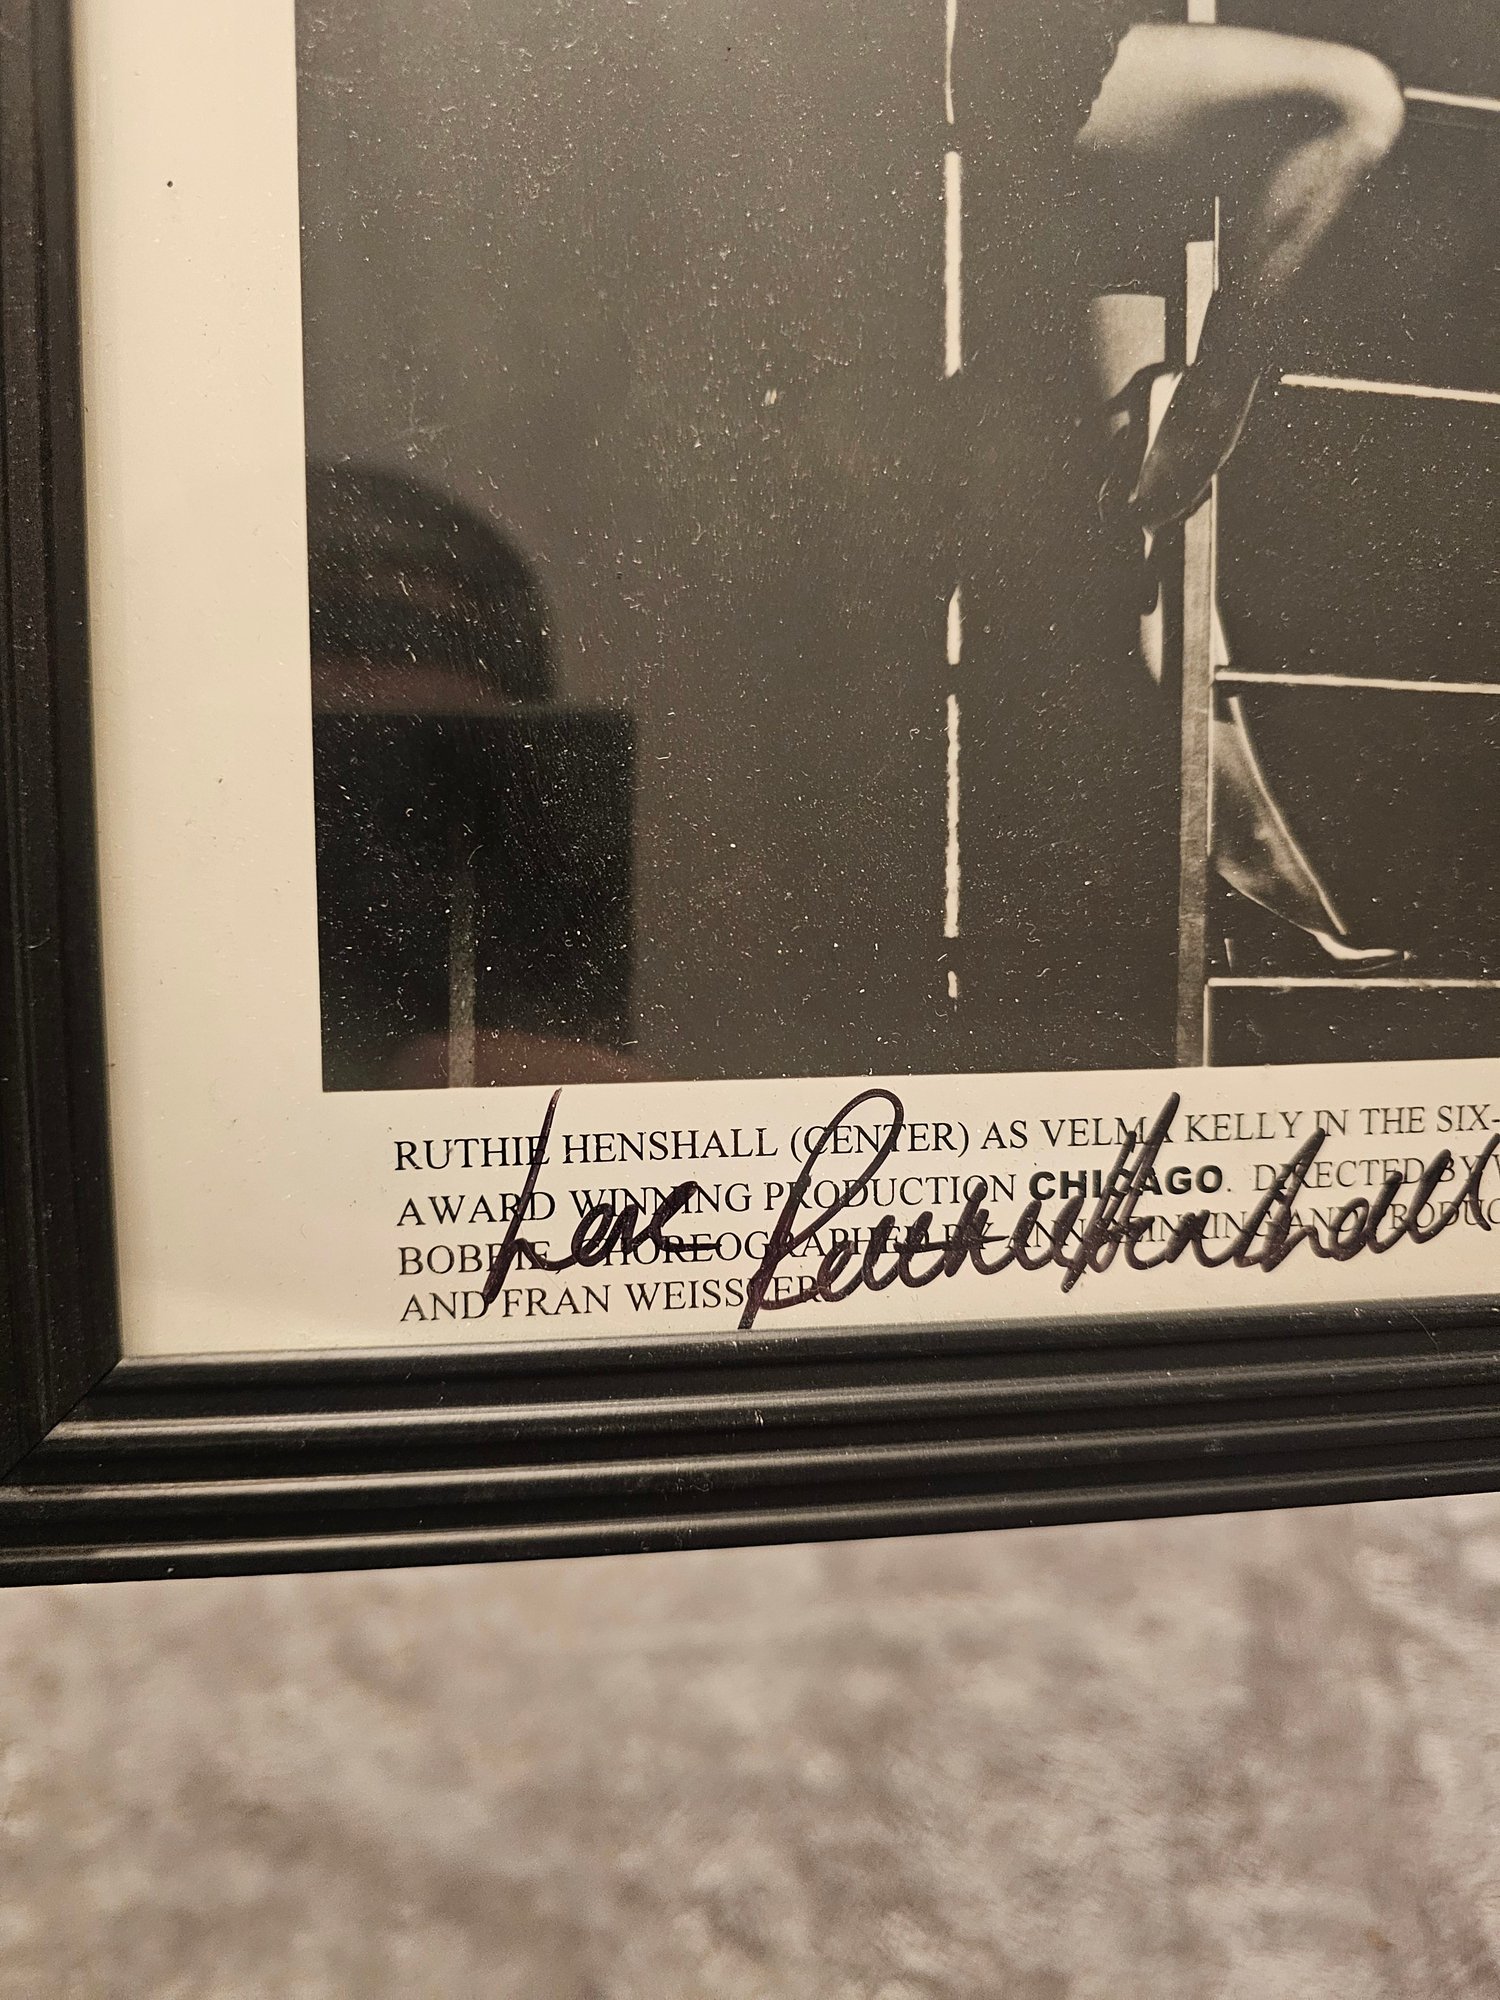 RUTHIE HENSHALL (CENTER) AS VELMA KELLY IN THE SIX-
AWARD WINNING PRODUCTION CHICAGO. DIRECTED BY W
BOBBIE, CHOREOGRAPHED BY ANN REINKING AND PRODUC
AND FRAN WEISSLER.
Love Ruthie Henshall